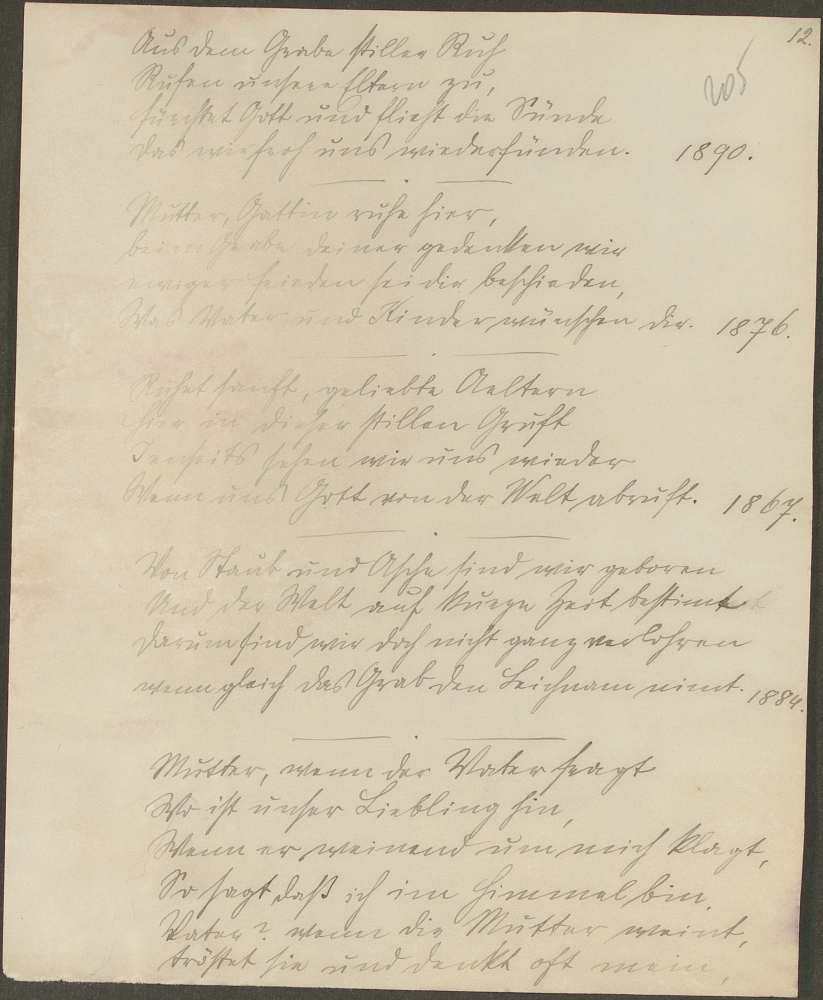 12.
205
Aus dem Grabe stiller Ruh
Rufen unsere Eltern zu,
fürchtet Gott und flieht die Sünde
das wir froh uns wiederfünden. 1890.
Mutter, Gattin ruhe hier,
beim Grabe deiner gedenken wir
ewiger frieden sei dir beschieden,
Was Vater und Kinder wünschen dir. 1876.
Ruhet sanft, geliebte Aeltern
hier in dieser stillen Gruft
Jenseits sehen wir uns wieder
Wenn uns Gott von der Welt abruft. 1867.
Von Staub und Asche sind wir geboren
Und der Welt auf kurze Zeit bestimt
darum sind wir doch nicht ganz verlohren
wenn gleich das Grab den Leichnam nimt. 1884.
Mutter, wenn der Vater fragt
Wo ist unser Liebling hin,
Wenn er weinend um mich klagt,
So sagt daß ich im Himmel bin.
Vater? wenn die Mutter weint,
tröstet sie und denkt oft mein,